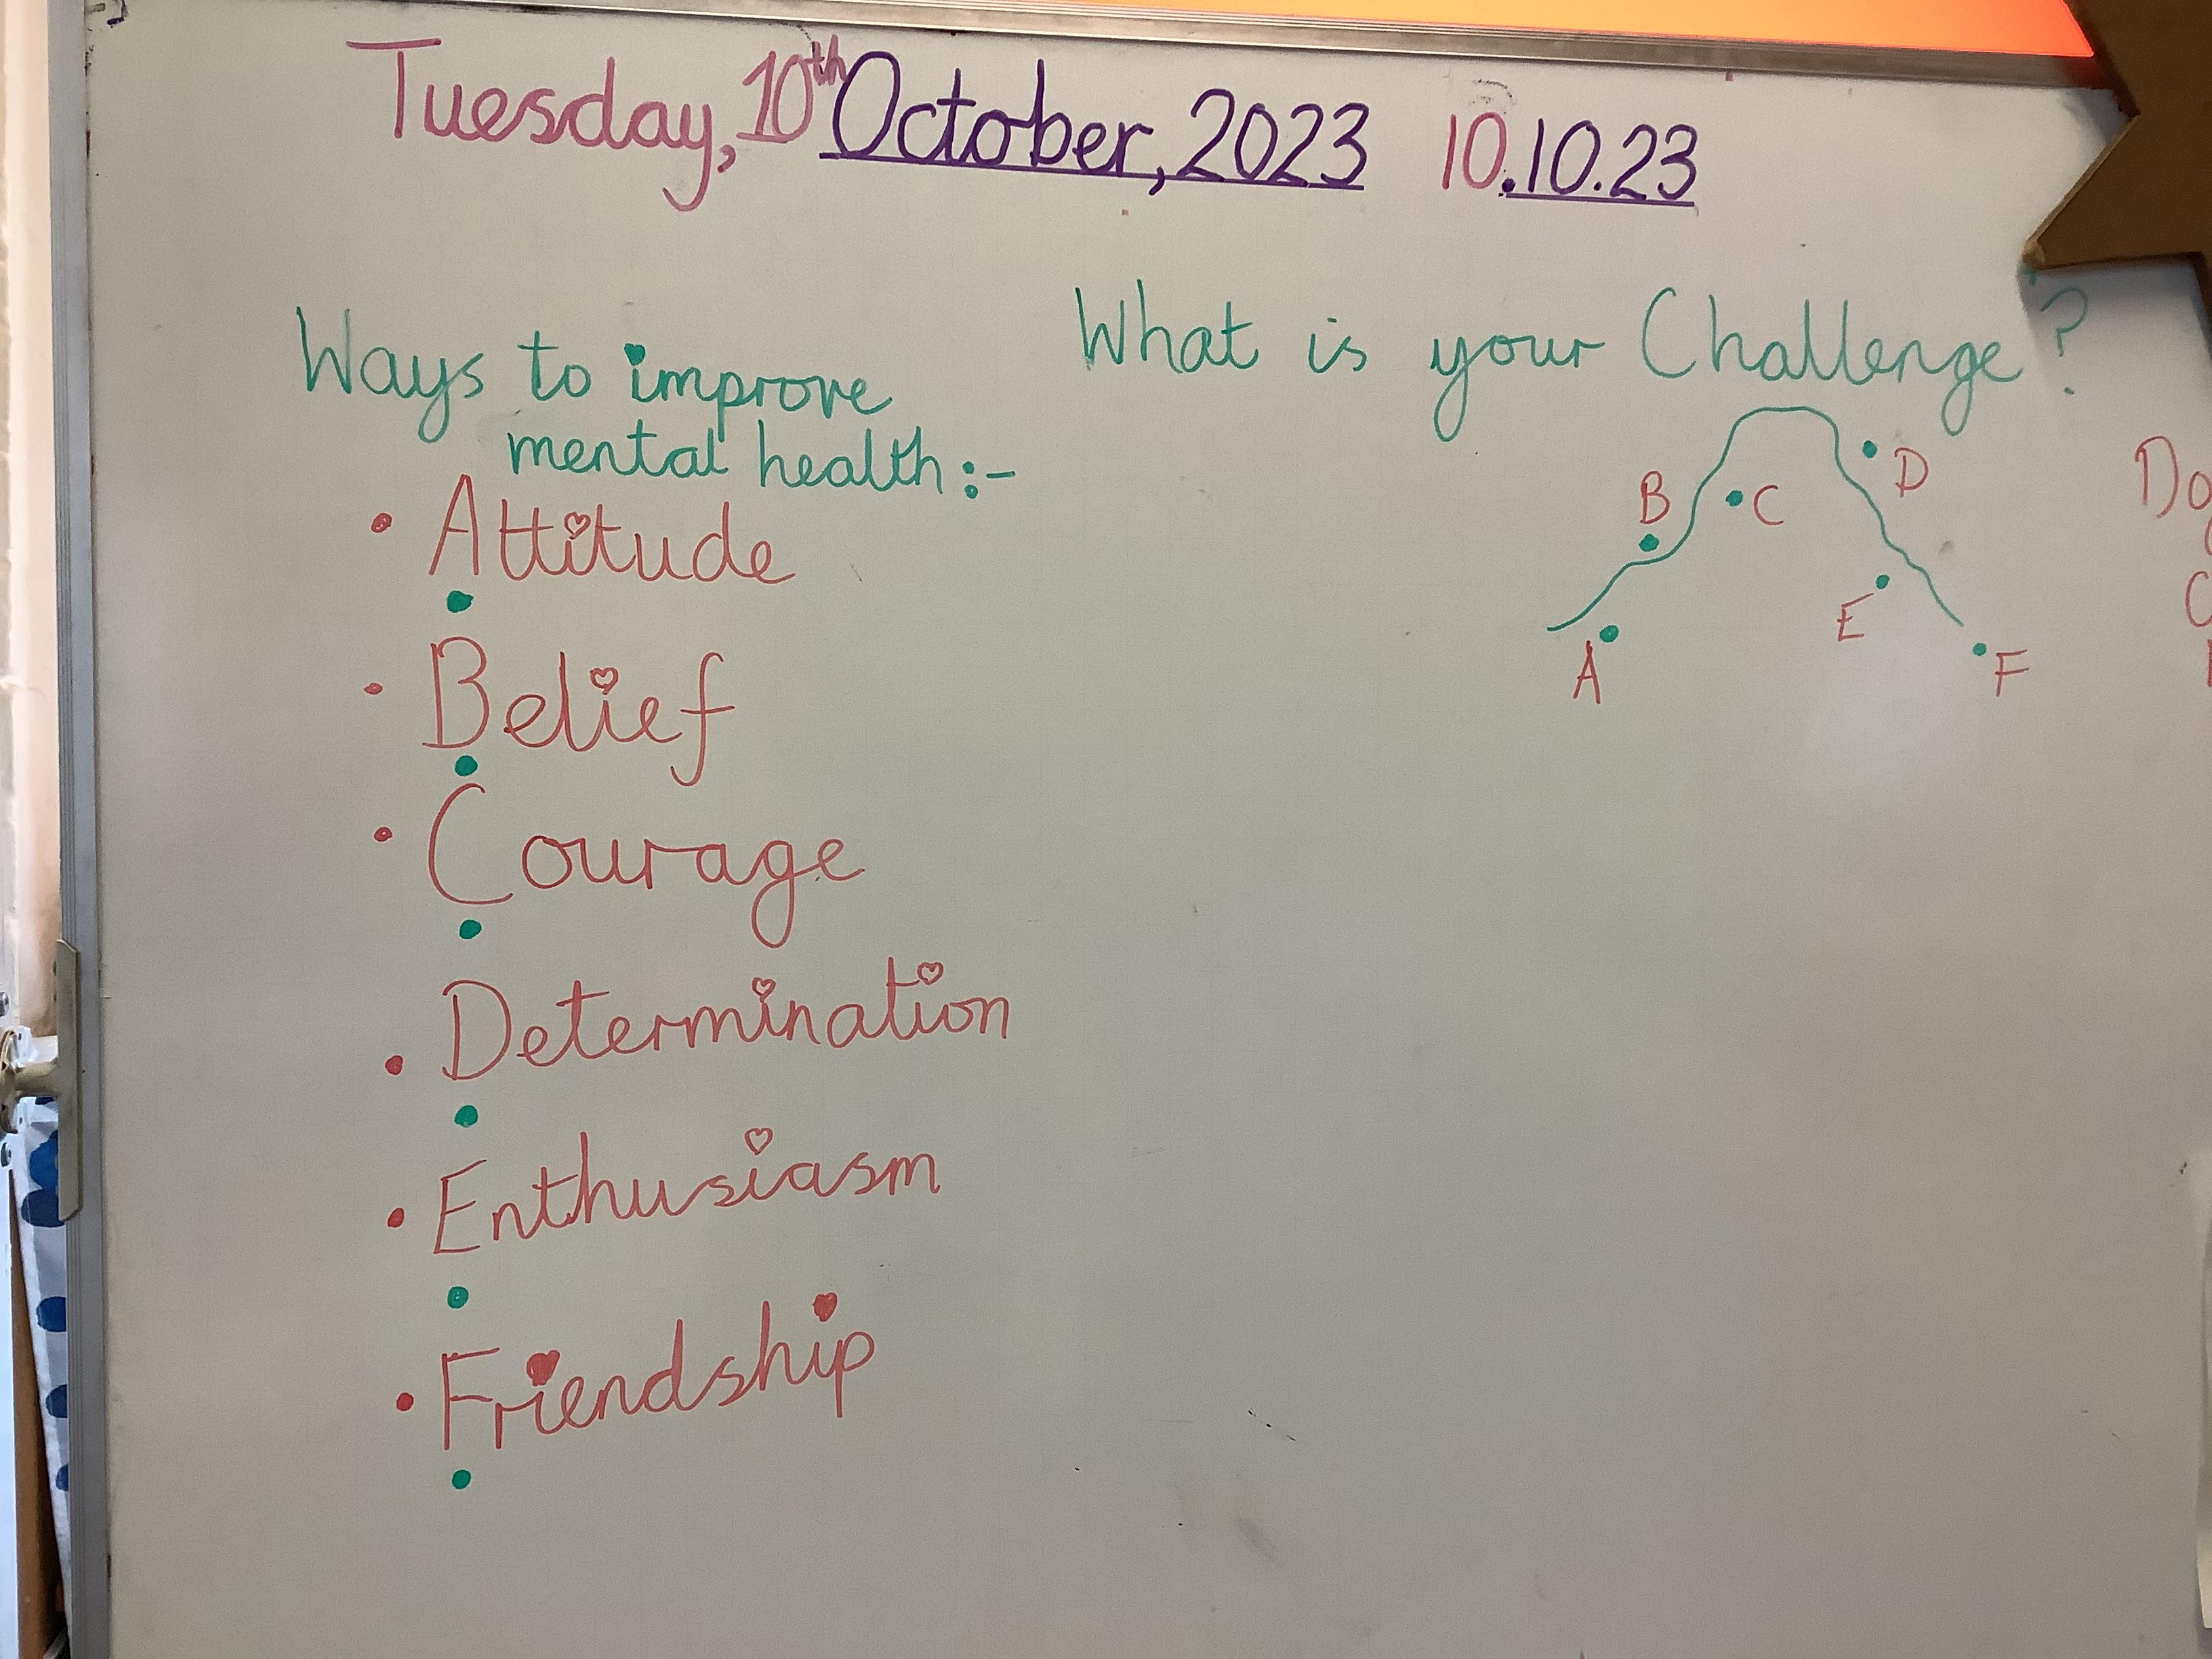 Tuesday, 10th October, 2023 10.10.23
Ways to improve
mental health :-
• Attitude
• Belief
• Courage
• Determination
• Enthusiasm
• Friendship
What is your Challenge?
B
C
D
A
E
F